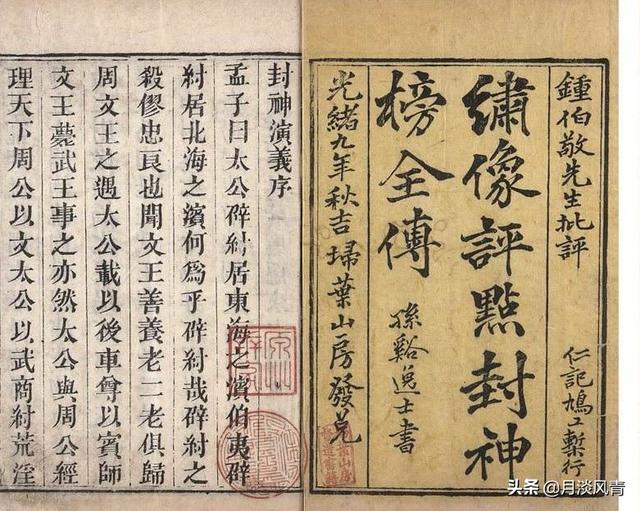 鍾伯敬先生批評
仁記鳩工槧行
繡像評點封神
榜全傳
孫谿逸士書
光緒九年秋吉埽葉山房發兌
封神演義序
孟子曰太公辟紂居東海之濱伯夷辟
紂居北海之濱何爲乎辟紂哉辟紂之
殺僇忠良也聞文王善養老二老俱歸
周文王之遇太公載以後車尊以賓師
文王薨武王事之亦然太公與周公經
理天下周公以文太公以武商紂荒淫
头条 @月淡风青